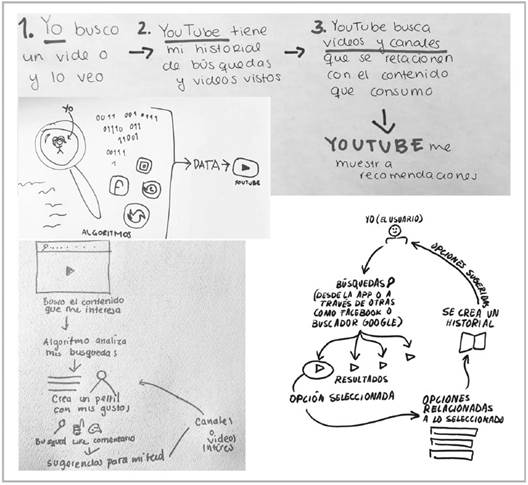 1. Yo busco
un video
y lo veo
2. YouTube tiene
mi historial
de búsquedas
y videos vistos
3. YouTube busca
videos y canales
que se relacionen
con el contenido
que consumo
YOUTUBE me
muestra
recomendaciones
YO
0011 001 0111
01110 011
11001
00111
1
DATA
YOUTUBE
ALGORITMOS
Busco el contenido
que me interesa
Algoritmo analiza
mis busquedas
Crea un perfil
con mis gustos
Busqued Like comentario
sugerencias para mi feed
Canales
o
videos
interes
YO (EL USUARIO)
BÚSQUEDAS
(DESDE LA APP O A
TRAVÉS DE OTRAS
COMO FACEBOOK O
BUSCADOR GOOGLE)
RESULTADOS
OPCIÓN SELECCIONADA
OPCIONES
RELACIONADAS
A LO SELECCIONADO
SE CREA UN
HISTORIAL
OPCIONES SUGERIDAS